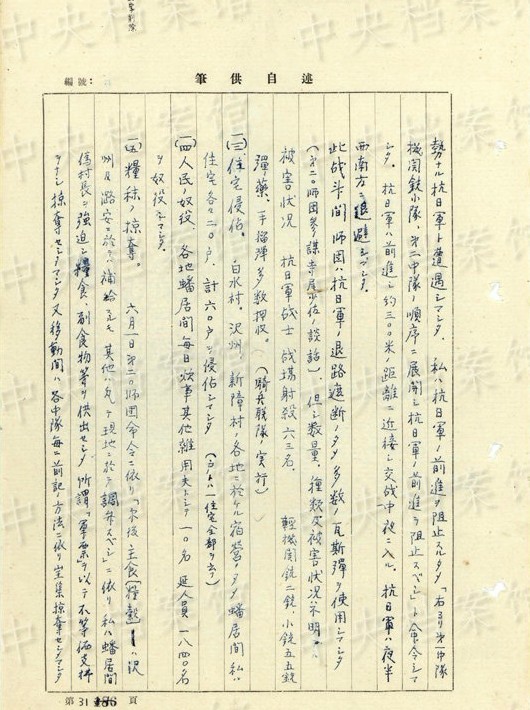 編號：
筆供自述
勢ナル抗日軍ト遭遇シマシタ。私ハ抗日軍ノ前進ヲ阻止スルタメ「右ヨリ第一中隊
機関銃小隊、第二中隊ノ順序ニ展開シ抗日軍ノ前進ヲ阻止スベシ」ト命令シマ
シタ。抗日軍ハ前進シ約三〇〇米ノ距離ニ近接シ交戦中夜ニ入ル。抗日軍ハ夜半
西南方ニ退避シマシタ。
此战斗間師団ハ抗日軍ノ退路遮断ノタメ多数ノ瓦斯彈ヲ使用シマシタ
(第二〇師団参謀寺尾少佐ノ談話)。但シ数量、種類及被害状況不明。
被害状況 抗日軍战士 战場射殺六三名。軽機関銃二銃 小銃五五銃
彈薬、手榴彈多数押収。(騎兵聯隊ノ実行)
(三)住宅侵佔。白水村、沢州、新障村ノ各地ニ於ケル宿營ノタメ蟠居間私ハ
住宅各々二〇户、計六〇户ヲ侵佔シマシタ (户トハ一住宅全部ヲ云フ)
(四)人民ノ奴役、各地蟠居間每日炊事其他雑用夫トシテ一〇名 延人員一八四〇名
ヲ奴役シマシタ。
(五)糧秣ノ掠奪。六月一日第二〇師団命令ニ依リ「今後ノ主食(糧穀)ハ沢
州及潞安ニ於テ補給スルモ其他ハ凡テ現地ニ於テ調弁スベシ」ニ依リ私ハ蟠居間
偽村長ニ強迫シ糧食、副食物等ヲ供出セシメ所謂「軍票」ヲ以テ不等価支拂
ヲナシ掠奪セシメマシタ又移動間ハ各中隊每ニ前記ノ方法ニ依リ蒐集掠奪セシメマシタ
第31頁